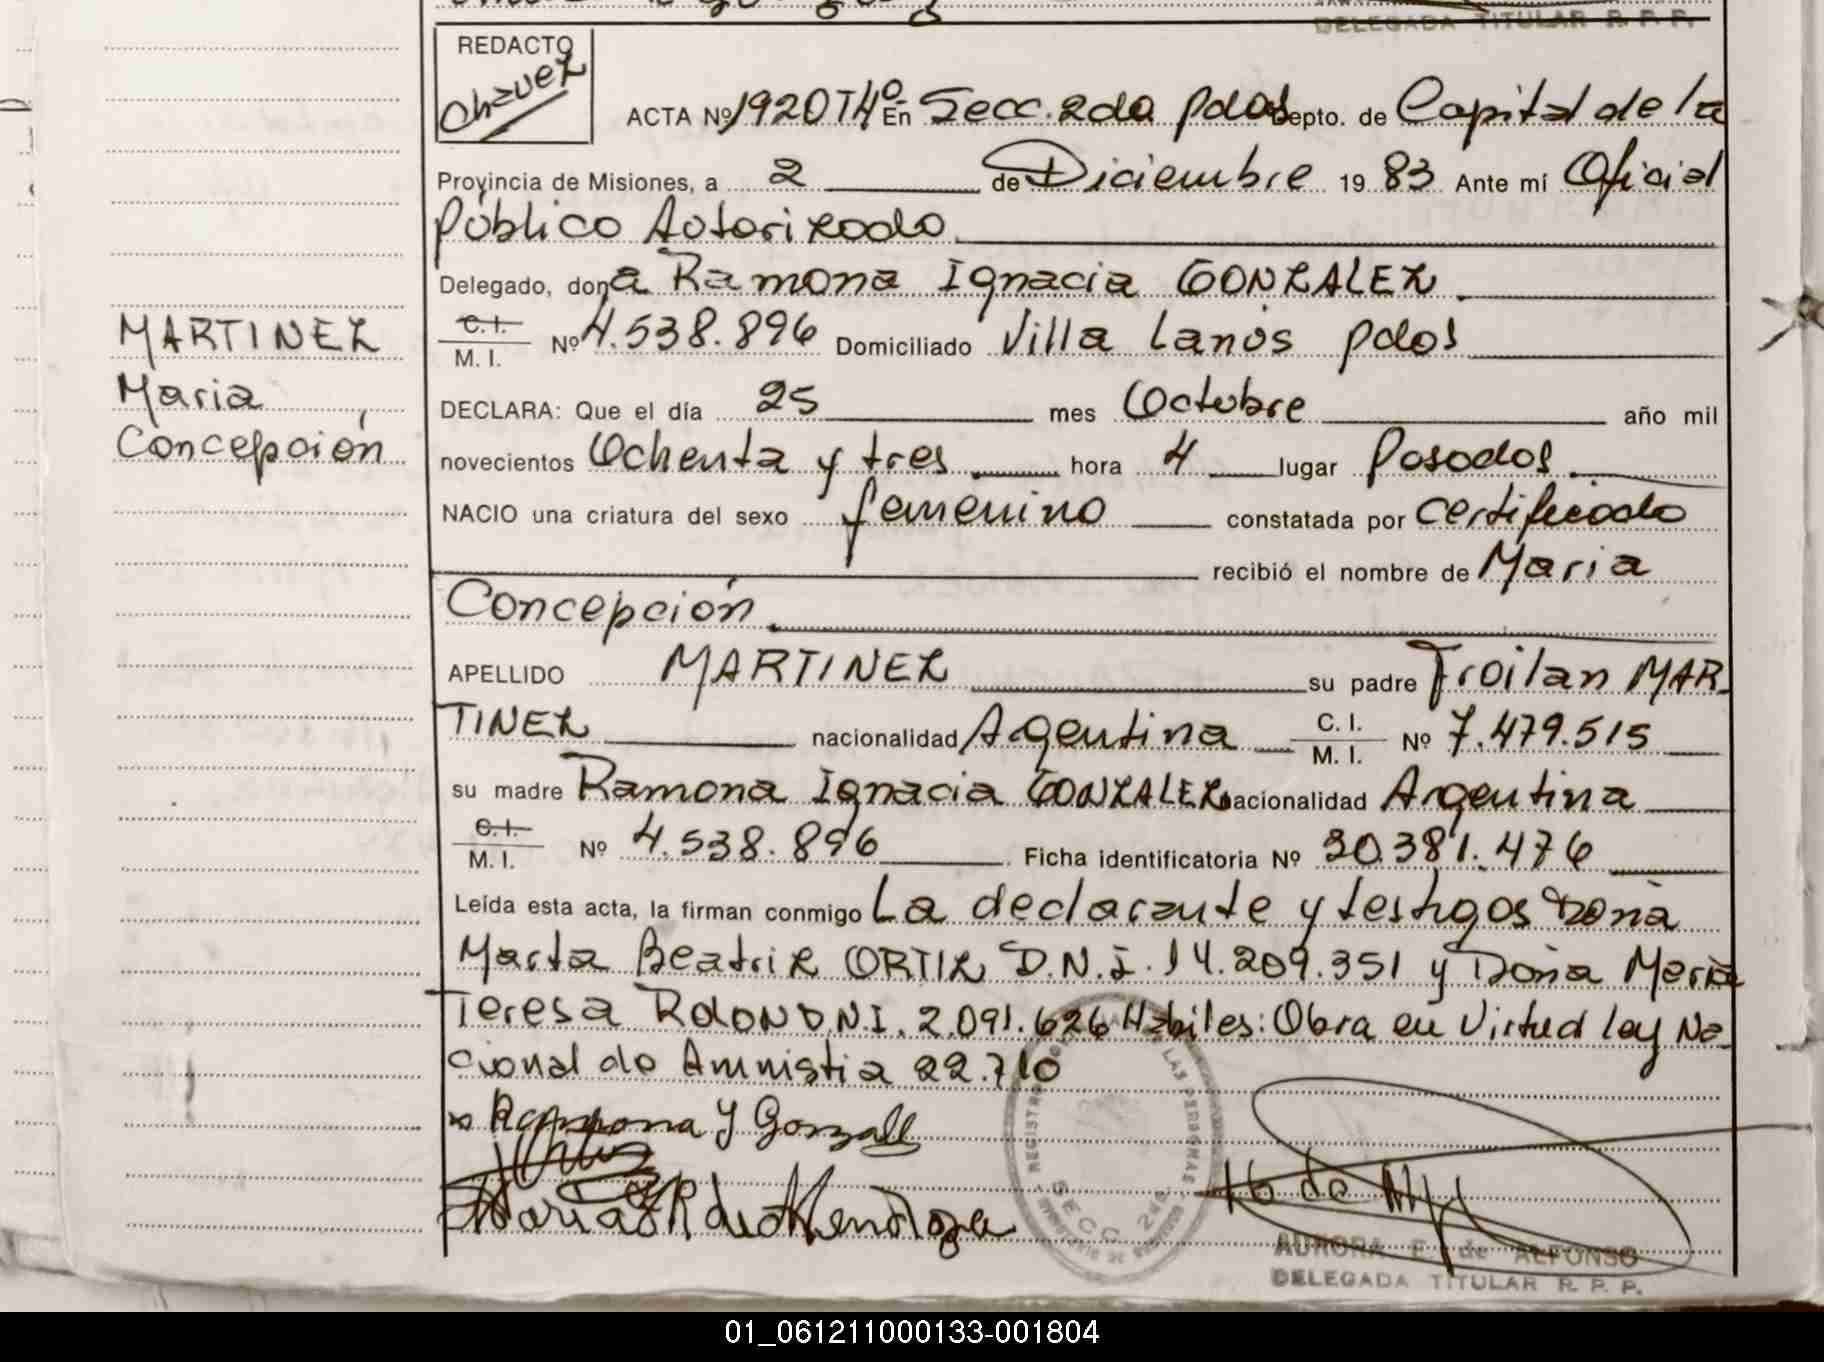 DELEGADA TITULAR R. P. P.
REDACTO
Chavez
ACTA Nº 1920 Tº 4º En Secc. 2da Pdas Depto. de Capital de la
Provincia de Misiones, a 2 de Diciembre 1983 Ante mí Oficial
Público Autorizado
Delegado, dona Ramona Ignacia GONZALEZ
C.I.
M. I. Nº 4.538.896 Domiciliado Villa Lanús Pdas
MARTINEZ
Maria
Concepción
DECLARA: Que el día 25 mes Octubre año mil
novecientos Ochenta y tres hora 4 lugar Posadas
NACIO una criatura del sexo femenino constatada por certificado
recibió el nombre de Maria
Concepción
APELLIDO MARTINEZ su padre Troilan MAR-
TINEZ nacionalidad Argentina C. I.
M. I. Nº 7.479.515
su madre Ramona Ignacia GONZALEZ nacionalidad Argentina
C.I.
M. I. Nº 4.538.896 Ficha identificatoria Nº 30.381.476
Leída esta acta, la firman conmigo La declarante y testigos Doña
Marta Beatriz ORTIZ D.N.I. 14.209.351 y Doña Maria
Teresa ROLON D.N.I. 2.091.626 Habiles: Obra en Virtud Ley Na
cional de Amnistia 22.710
Ramona Y Gonzalez
Maria R de Mendoza
AURORA E. de ALFONSO
DELEGADA TITULAR R. P. P.
01_061211000133-001804